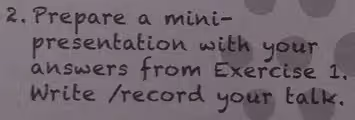 2. Prepare a mini-
presentation with your
answers from Exercise 1.
Write /record your talk.